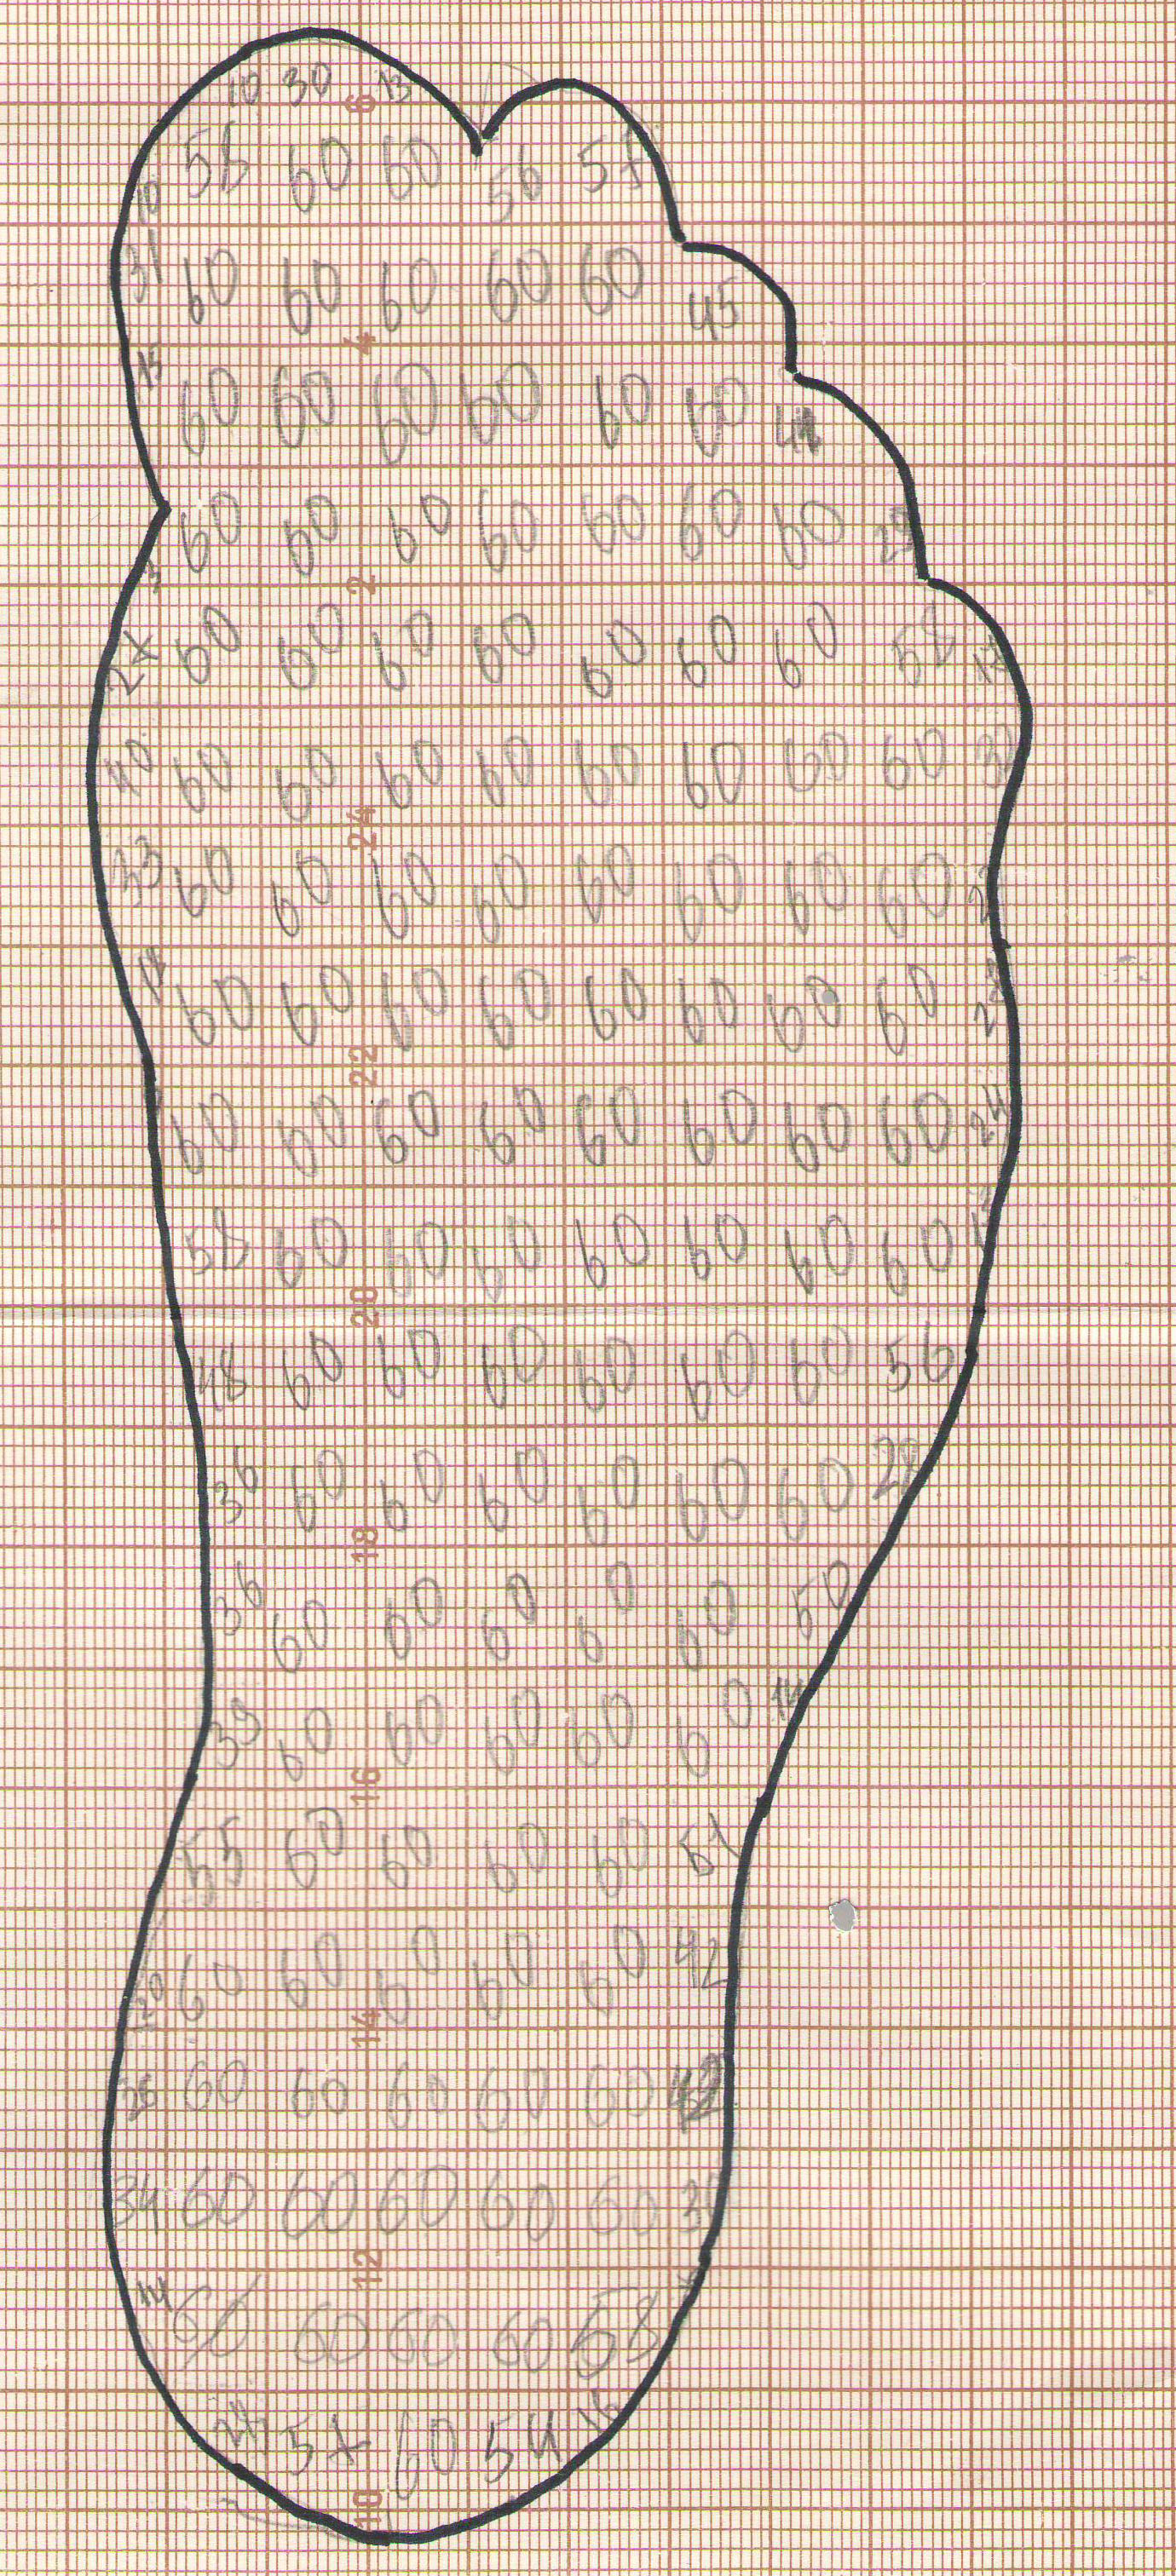 10 30 13
6
58 60 60 56 57
10
31 60 60 60 60 60 45
4
15 60 60 60 60 60 60
60 60 60 60 60 60 60
3
2
27 60 60 60 60 60 60 60 58
40 60 60 60 60 60 60 60 60
24
33 60 60 60 60 60 60 60 60
18 60 60 60 60 60 60 60 60
22
60 60 60 60 60 60 60 60 24
58 60 60 60 60 60 60 60
20
48 60 60 60 60 60 60 56
36 60 60 60 60 60 60
18
36 60 60 60 60 60 50
39 60 60 60 60 60 14
16
55 60 60 60 60 51
20 60 60 60 60 60 42
14
26 60 60 60 60 60
34 60 60 60 60 60 30
12
14 60 60 60 58
57 60 54 16
10